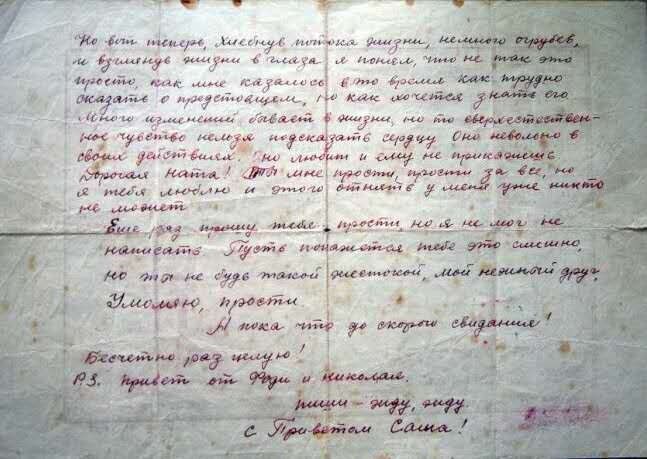 Но вот теперь, хлебнув потока жизни, немного огрубев,
и взглянув жизни в глаза я понял, что не так это
просто, как мне казалось в то время как трудно
сказать о предстоящем, но как хочется знать его
Много изменений бывает в жизни, но то сверхестествен-
ное чувство нельзя подсказать сердцу Оно невольно в
своих действиях. Оно любит и ему не прикажешь
Дорогая Ната! Ты мне прости, прости за все, но
я тебя люблю и этого отнять у меня уже никто
не может
Еще раз прошу тебя прости, но я не мог не
написать Пусть покажется тебе это смешно,
но ты не будь такой жестокой, мой нежный друг,
Умоляю, прости
А пока что до скорого свидания!
Бесчетно раз целую!
P.S. Привет от Феди и Николая.
пиши – жду, жду.
с Приветом Саша!